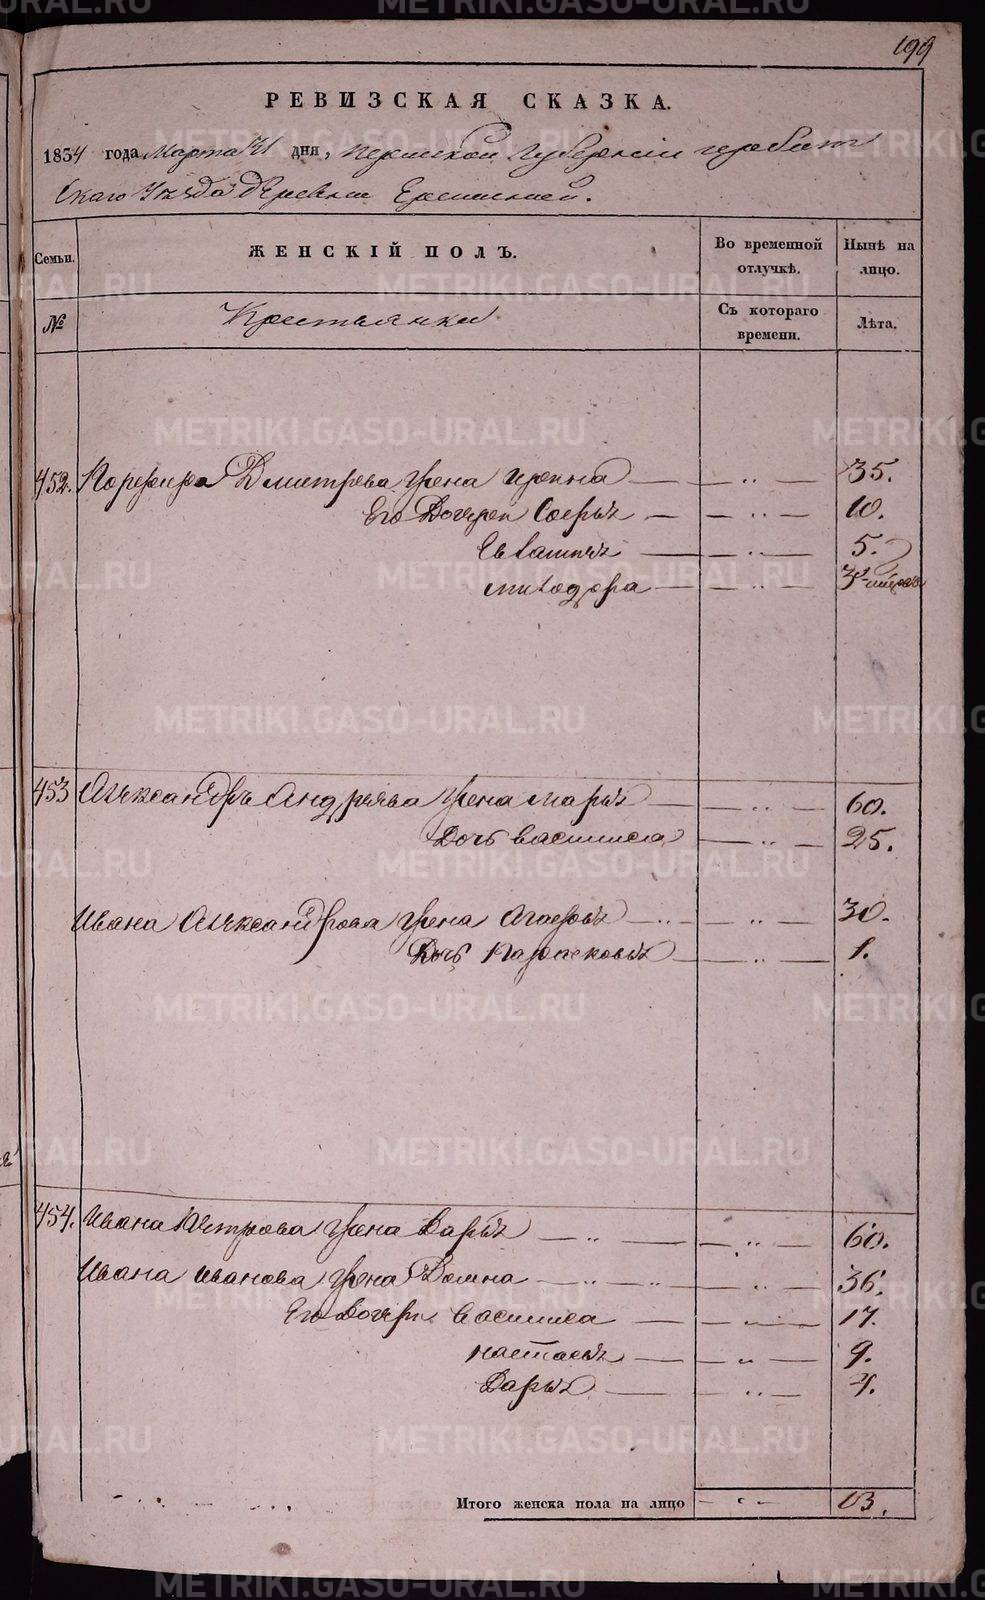 199
РЕВИЗСКАЯ СКАЗКА.
1854 года Марта 31 дня, Пермской Губерніи Ирбит
скаго Уѣзда деревни
Семьи. ЖЕНСКІЙ ПОЛЪ. Во временной отлучкѣ. Нынѣ на лицо.
№ Крестьянки Съ котораго времени. Лѣта.
452. Порфира Дмитрева жена Ирина — — ,, — 35.
Его Дочери Софья — — ,, — 10.
Евлампья — — ,, — 5.
Митодора — — ,, —
453 Александръ Андрѣева жена Марья — — ,, — 60.
Дочь Василиса — — ,, — 25.
Ивана Александрова жена Агафья — ,, — — ,, — 30.
Дочь Парасковья — — ,, — 1.
454. Ивана Петрова жена Дарья — ,, — — ,, — 60.
Ивана Иванова жена Домна — ,, — ,, — ,, — 36.
Его Дочери Василиса — — ,, — 17.
Настасья — — ,, — 9.
Дарья — — ,, — 4.
Итого женска пола на лицо — ,, — 13.
METRIKI.GASO-URAL.RU